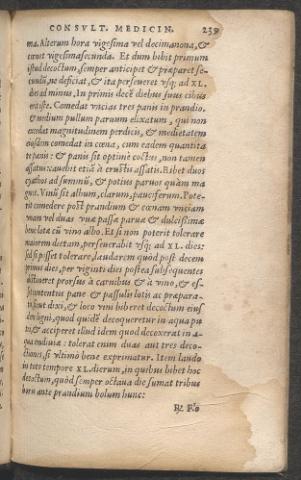 CONSVLT. MEDICIN. 239
ma. Alterum hora vigesima vel decimanona, &
vigesimasecunda. Et dum bibit primum
istud decoctum, semper anticipet & præparet se-
ne deficiat, & ita perseueret vsq; ad XL.
ad minus, In primis decē diebus suus cibus
Comedat vncias tres panis in prandio,
& medium pullum paruum elixatum, qui non
excedat magnitudinem perdicis, & medietatem
eiusdem comedat in cœna, cum eadem quantita
te panis: & panis sit optimè coctus, non tamen
assatus. Bibet duos
cyathos ad summū, & potius paruos quàm ma
gnos. Vinū sit album, clarum, pauciferum. Pote-
rit comedere post prandium & cœnam vnciam
vnam vel duas vuæ passæ paruæ & dulcissimæ
bene lotæ cū vino albo. Et si non poterit tolerare
dietam, perseuerabit vsq; ad XL. dies:
sed si posset tolerare, laudarem quòd post decem
primos dies, per viginti dies postea subsequentes
abstineret prorsus à carnibus & à vino, &
pane & passulis lotis ac præpara-
dixi, & loco vini biberet decoctum eius
ligni, quod quidē decoqueretur in aqua pu
& acciperet illud idem quod decoxerat in a-
: tolerat enim duas aut tres deco-
ctiones, si vltimò bene exprimatur. Item laudo
toto tempore XL. dierum, in quibus bibet hoc
decoctum, quòd semper octaua die sumat tribus
horis ante prandium bolum hunc: